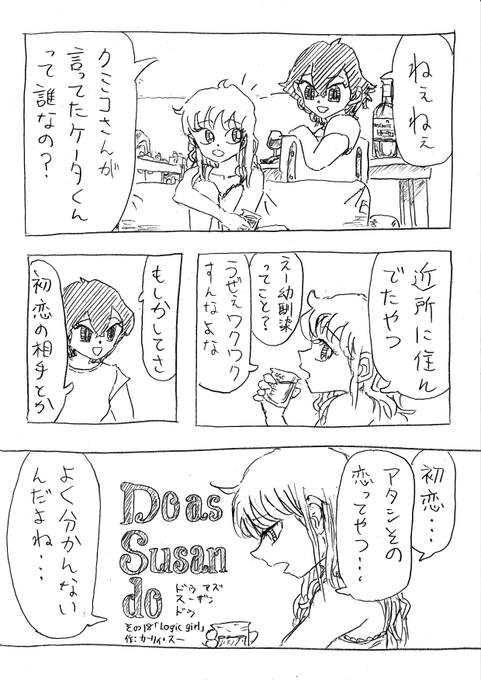 ねぇねぇ
クミコさんが
言ってたケータくん
って誰なの？
近所に住ん
でたやつ
えー幼馴染
ってこと？
うぜぇワクワク
すんなよな
もしかしてさ
初恋の相手とか
初恋…
アタシその
恋ってやつ…
よく分かんない
んだよね…
Do as
Susan
do
ドゥ アズ
スーザン
ドゥ
その18「Logic girl」
作：カーリィ・スー